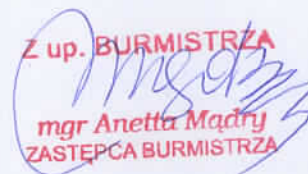 Z up. BURMISTRZA
mgr Anetta Mądry
ZASTĘPCA BURMISTRZA